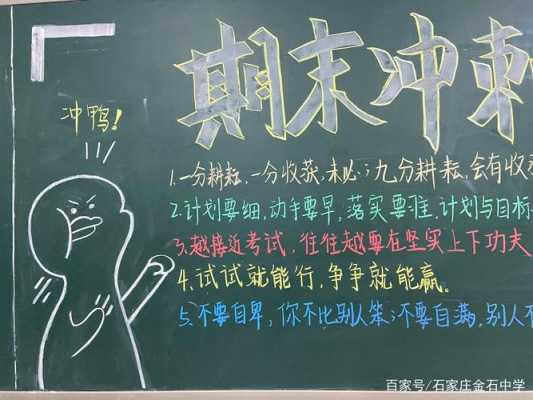 期末冲刺
冲鸭!
1.一分耕耘,一分收获,未必;九分耕耘,会有收获
2.计划要细,动手要早,落实要狠,计划与目标
3.越接近考试,往往越要在坚实上下功夫
4.试试就能行,争争就能赢。
5.不要自卑,你不比别人笨;不要自满,别人不
百家号/石家庄金石中学